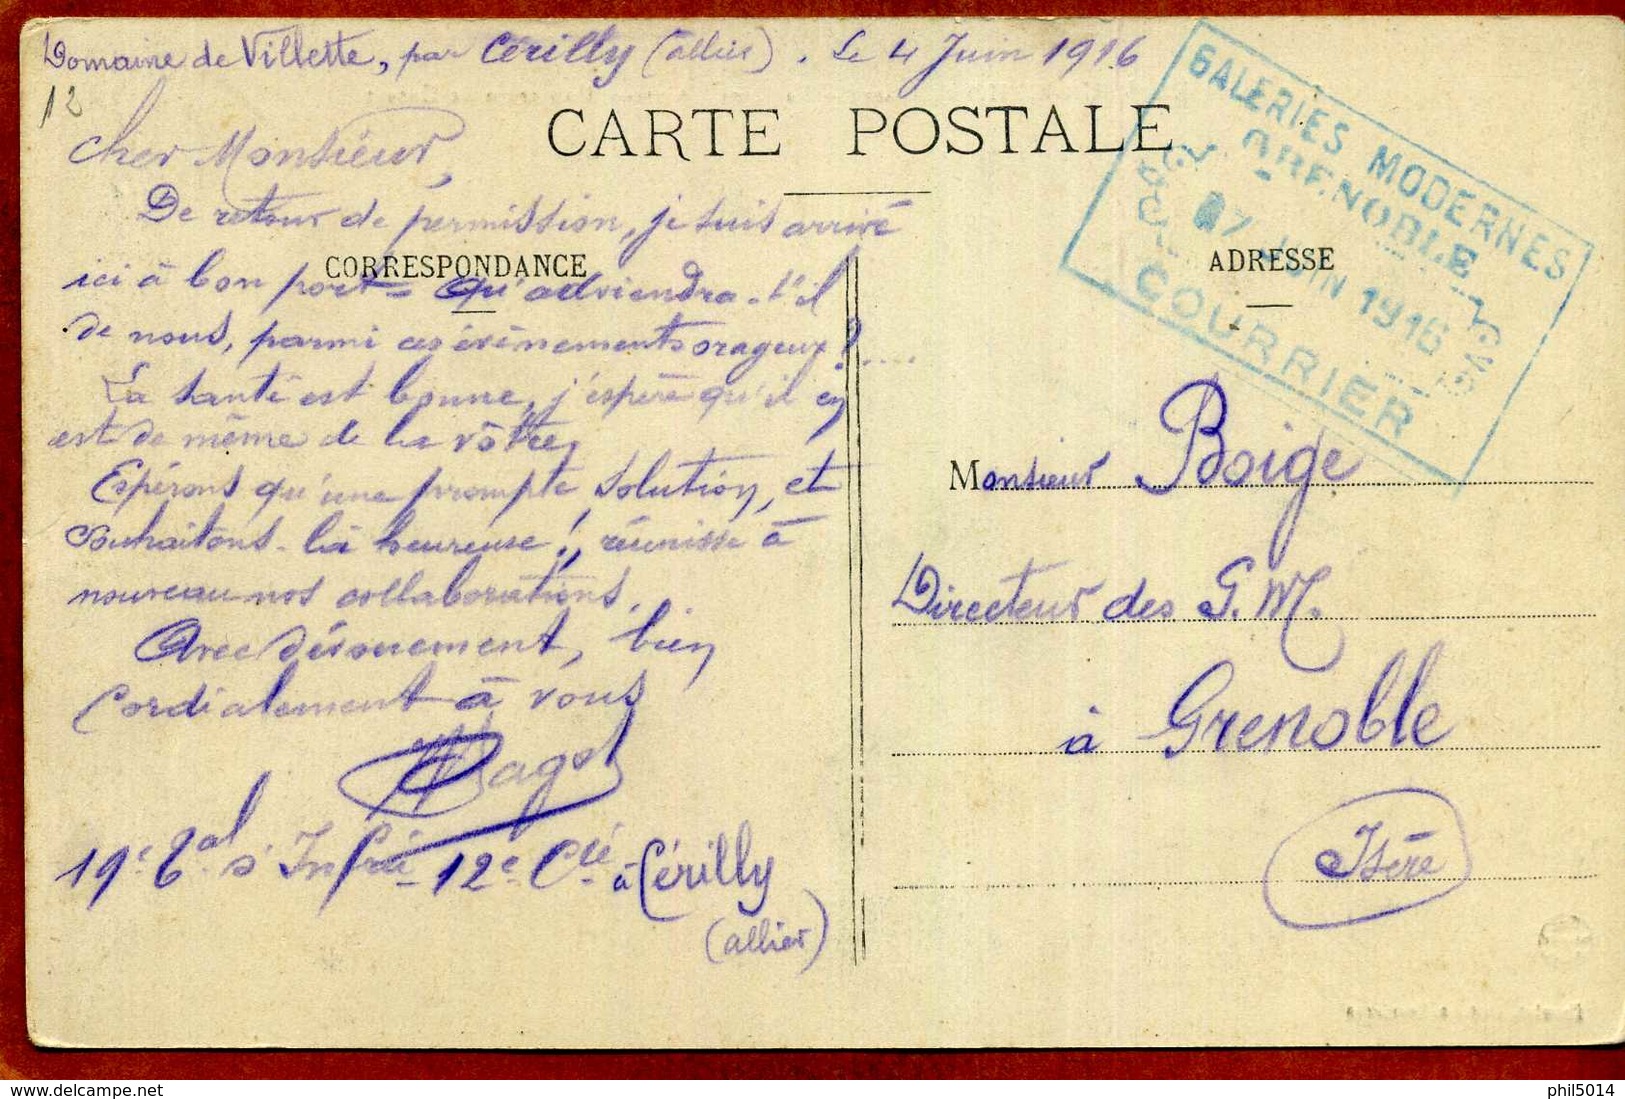 Domaine de Villette, par Cérilly (allier). Le 4 Juin 1916
12
CARTE POSTALE
CORRESPONDANCE
Cher Monsieur,
De retour de permission, je suis arrivé
ici à bon port = Qu'adviendra-t'il
de nous, parmi ces évènements orageux ?....
La santé est bonne, j'espère qu'il en
est de même de la vôtre,
Espérons qu'une prompte solution, et
souhaitons-la heureuse !, réunisse à
nouveau nos collaborations.
Avec dévouement, bien
Cordialement à vous
19e Bal d'Infrie 12e Cie à Cérilly
(allier)
GALERIES MODERNES
GRENOBLE
07 JUIN 1916
COURRIER
ADRESSE
Monsieur Boige
Directeur des G. M.
à Grenoble
Isère
delcampe.net
phil5014